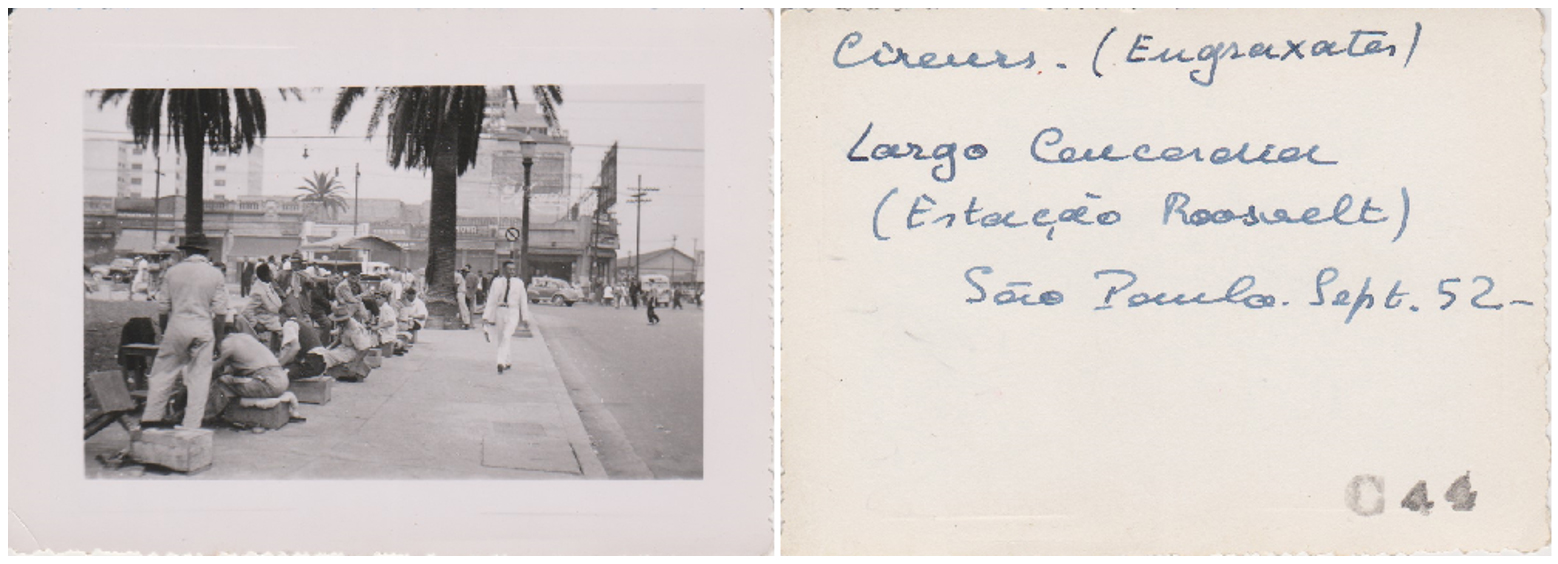 NOVA
Cireurs. (Engraxates)
Largo Concordia
(Estação Roosvelt)
São Paulo. Sept. 52-
C 44